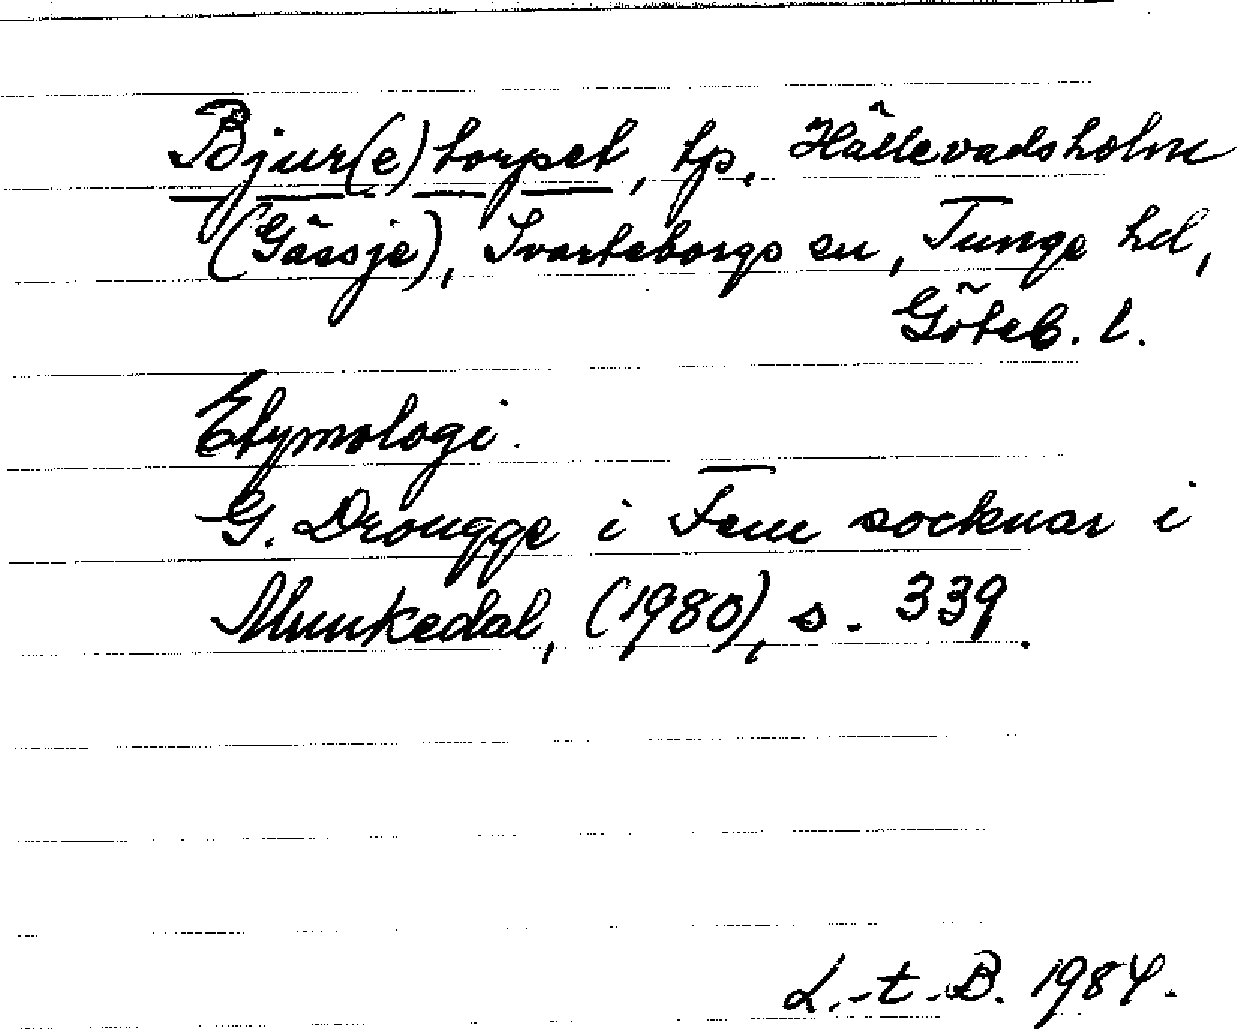 Bjur(e)torpet, tp, Hällevadsholm
(Gässje), Svarteborgs sn, Tunge hd,
Göteb. l.
Etymologi.
G. Drougge i Fem socknar i
Munkedal, (1980), s. 339.
L.-t.B. 1984.